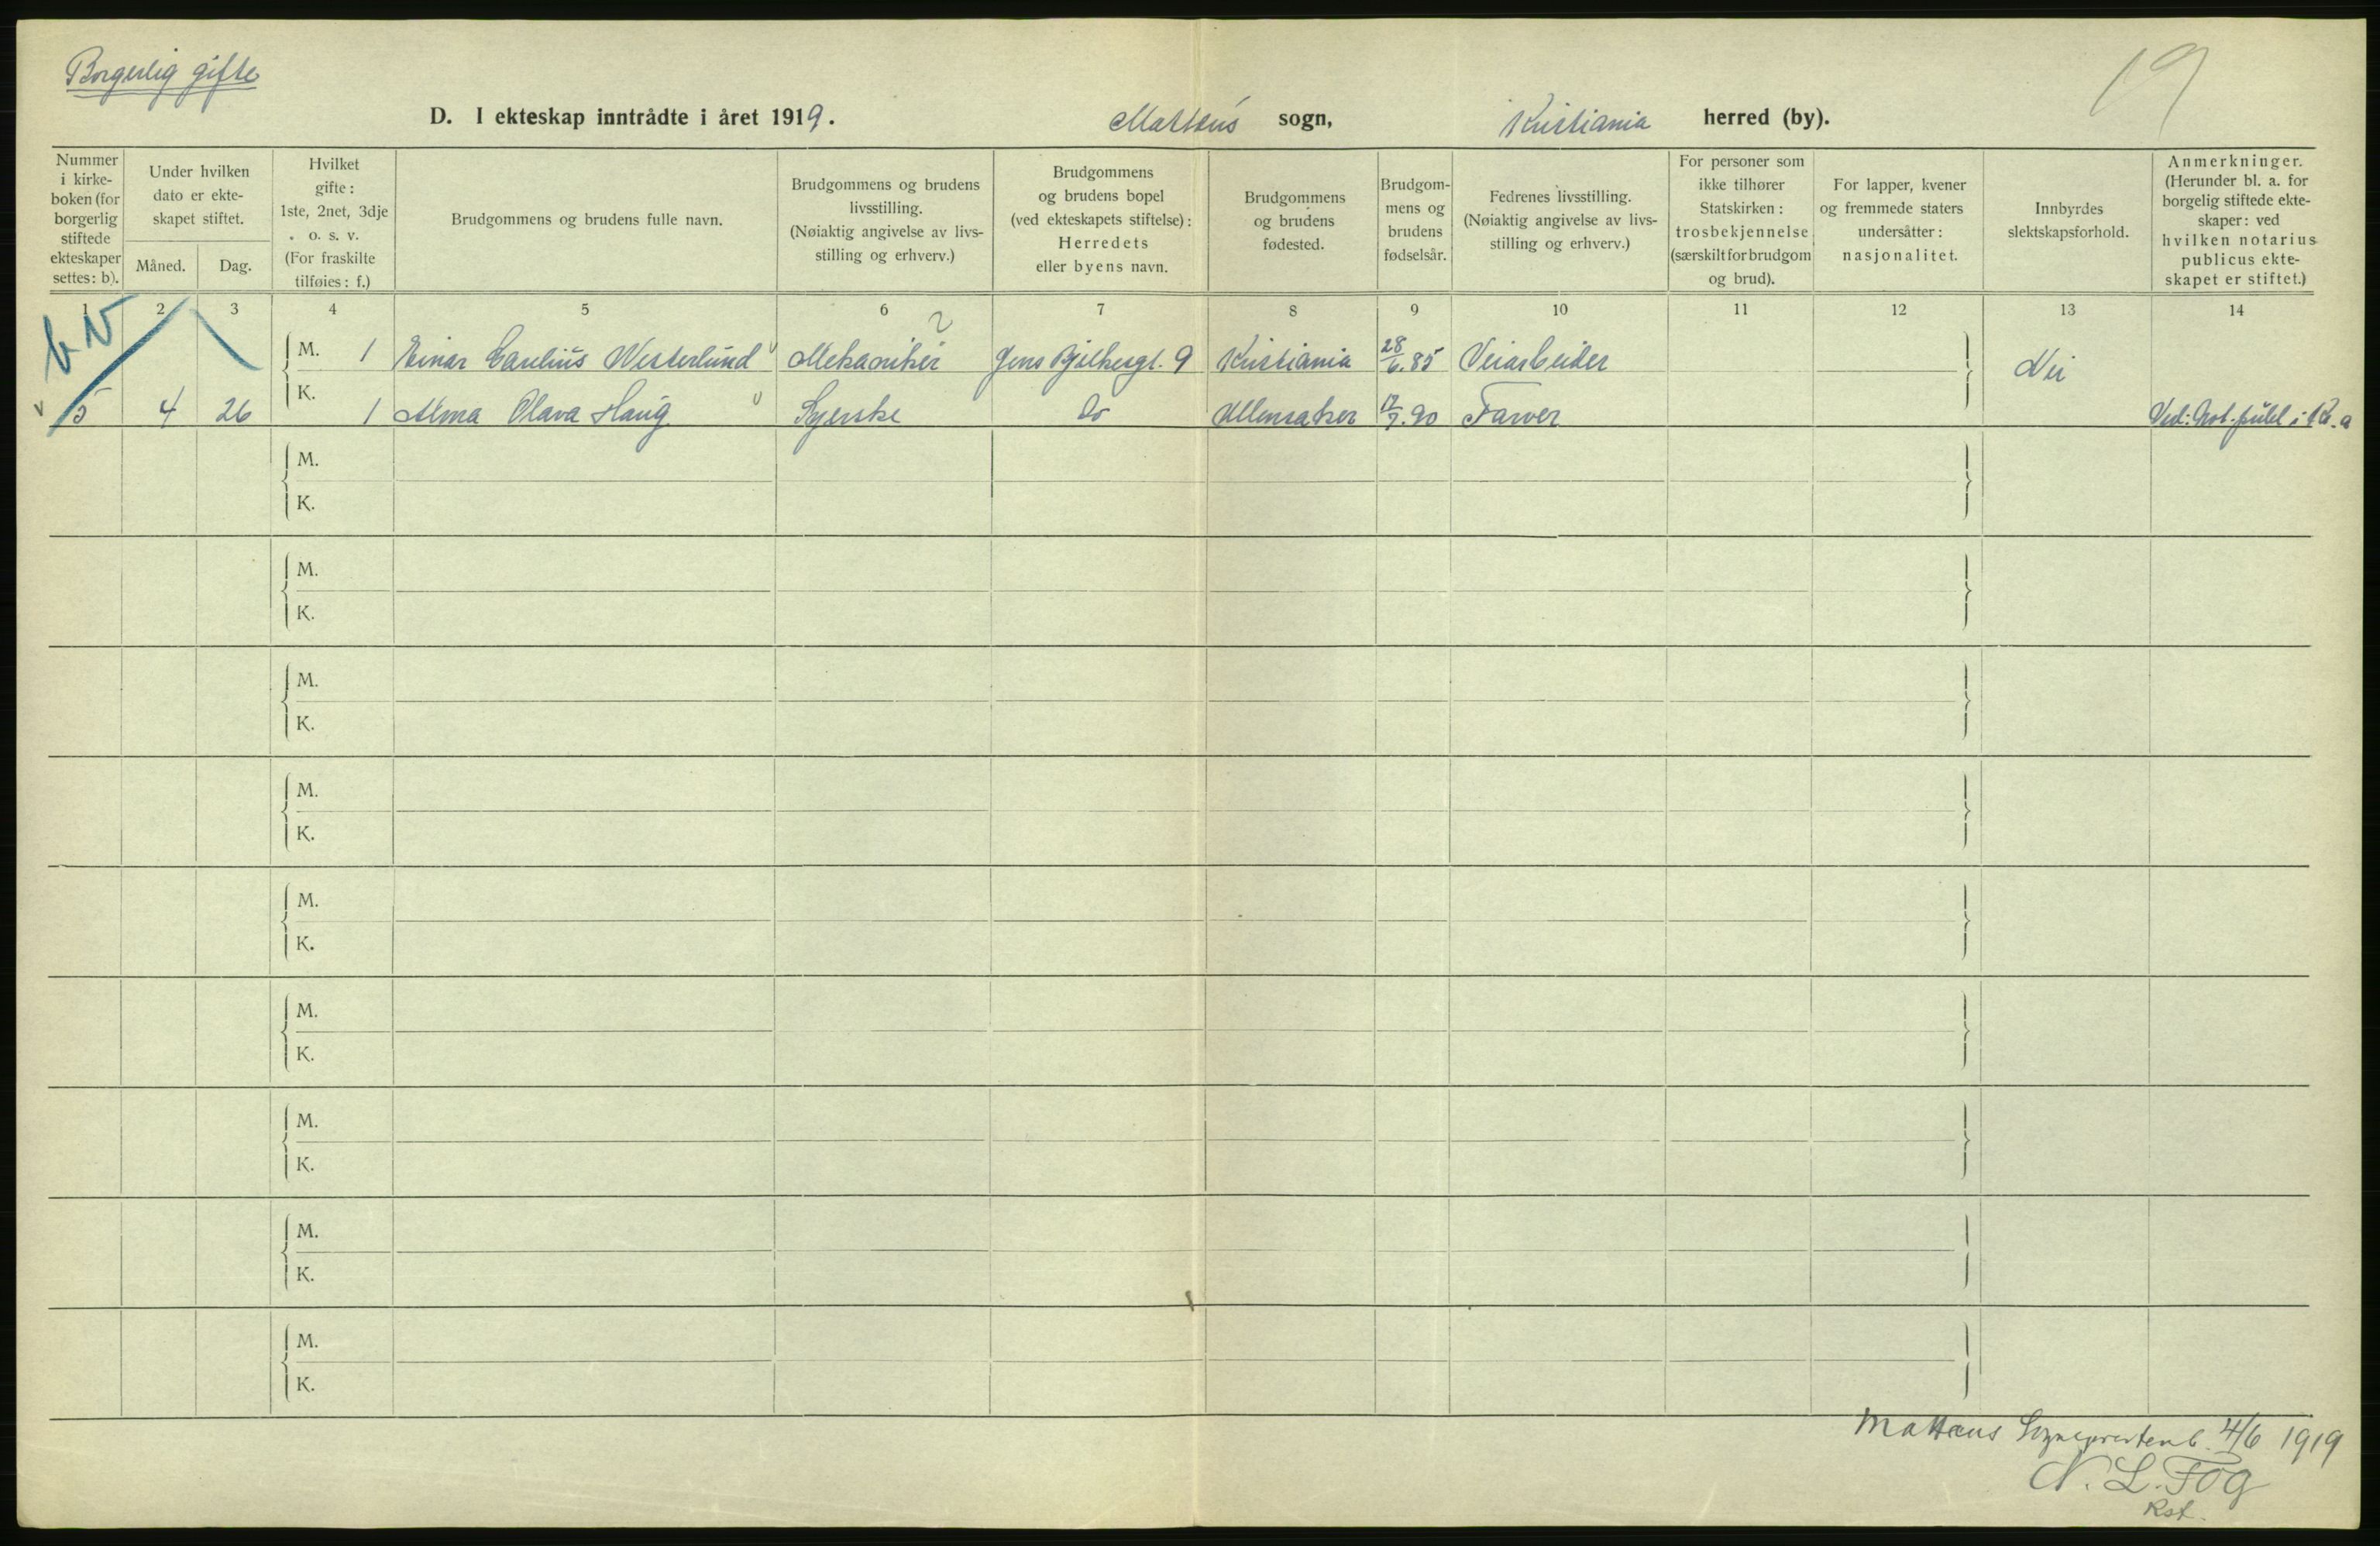 Borgerlig gifte
19
D. I ekteskap inntrådte i året 1919. Matteus sogn, Kristiania herred (by).
Nummer i kirkeboken (for borgerlig stiftede ekteskaper settes: b).
Under hvilken dato er ekteskapet stiftet.
Måned. Dag.
Hvilket gifte: 1ste, 2net, 3dje o. s. v. (For fraskilte tilføies: f.)
Brudgommens og brudens fulle navn.
Brudgommens og brudens livsstilling. (Nøiaktig angivelse av livsstilling og erhverv.)
Brudgommens og brudens bopel (ved ekteskapets stiftelse): Herredets eller byens navn.
Brudgommens og brudens fødested.
Brudgommens og brudens fødselsår.
Fedrenes livsstilling. (Nøiaktig angivelse av livsstilling og erhverv.)
For personer som ikke tilhører Statskirken: trosbekjennelse (særskilt for brudgom og brud).
For lapper, kvener og fremmede staters undersåtter: nasjonalitet.
Innbyrdes slektskapsforhold.
Anmerkninger. (Herunder bl. a. for borgelig stiftede ekteskaper: ved hvilken notarius publicus ekteskapet er stiftet.)
1 2 3 4 5 6 7 8 9 10 11 12 13 14
M. 1 Einar Westerlund Mekaniker Jens Bjelkesgt. 9 Kristiania 28/6.85 Veiarbeider Nei
5 4 26 K. 1 Alma Olava Haug Syerske Do Ullensaker 17/7.90 Farver Ved: Not. publ i Kr.a
M.
K.
M.
K.
M.
K.
M.
K.
M.
K.
M.
K.
M.
K.
M.
K.
M.
K.
Matteus Sogneprestemb. 4/6 1919
N. L. Fog